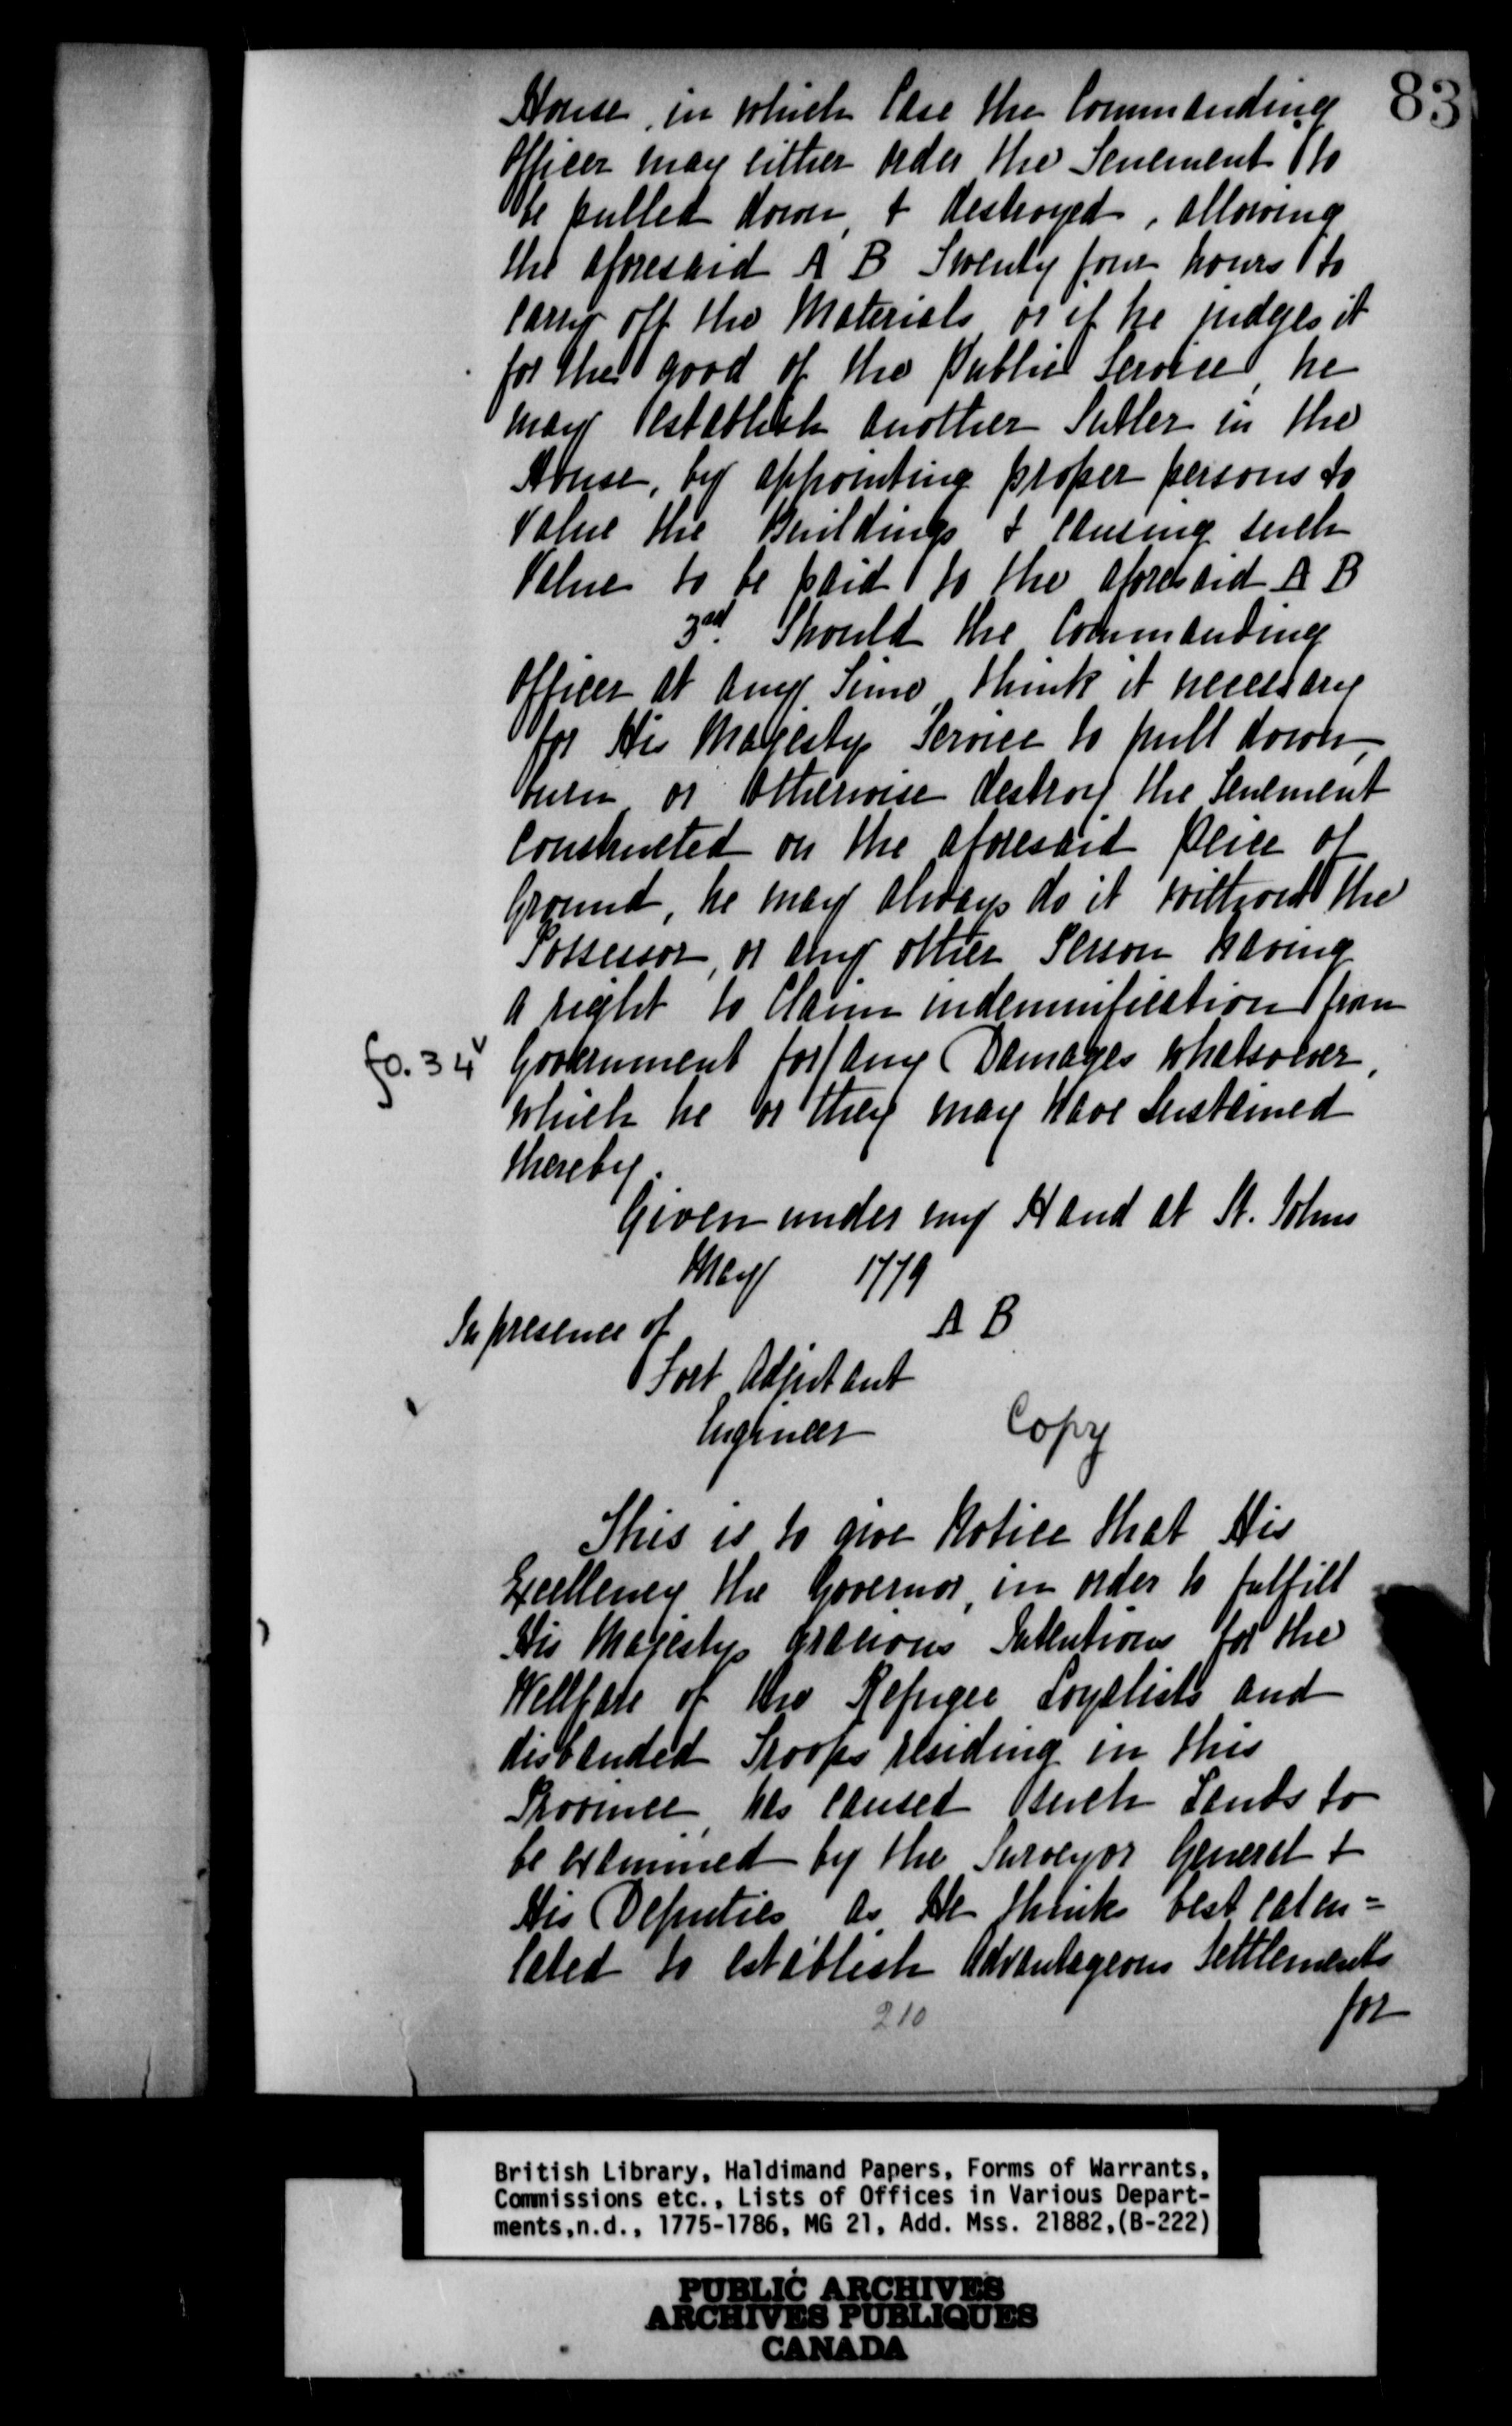 83
House, in which Case the Commanding
Officer may either order the Tenement to
be pulled down, & destroyed, allowing
the aforesaid A B Twenty four hours to
carry off the Materials or if he judges it
for the good of the Public Service, he
may establish another Sutler in the
House, by appointing proper persons to
Value the Buildings & causing such
Value to be paid to the aforesaid A B
3rd. Should the Commanding
Officer at any Time, think it necessary
for His Majestys Service to pull down,
burn or otherwise destroy the Tenement
constructed on the aforesaid peice of
Ground, he may always do it without the
Possessor, or any other Person having
a right to Claim indemnification from
fo. 34v Government for/any Damages whatsoever,
which he or they may have Sustained
thereby.
Given under my Hand at St. Johns
May 1779
In presence of A B
Fort Adjutant
Engineer Copy
This is to give Notice that His
Excellency the Governor, in order to fulfill
His Majestys gracious Intentions for the
Wellfare of the Refugee Loyalists and
disbanded Troops residing in this
Province, has caused such Lands to
be examined by the Surveyor General &
His Deputies as He thinks best calcu=
lated to establish Advantageous Settlements
for
210
British Library, Haldimand Papers, Forms of Warrants,
Commissions etc., Lists of Offices in Various Depart-
ments,n.d., 1775-1786, MG 21, Add. Mss. 21882,(B-222)
PUBLIC ARCHIVES
ARCHIVES PUBLIQUES
CANADA